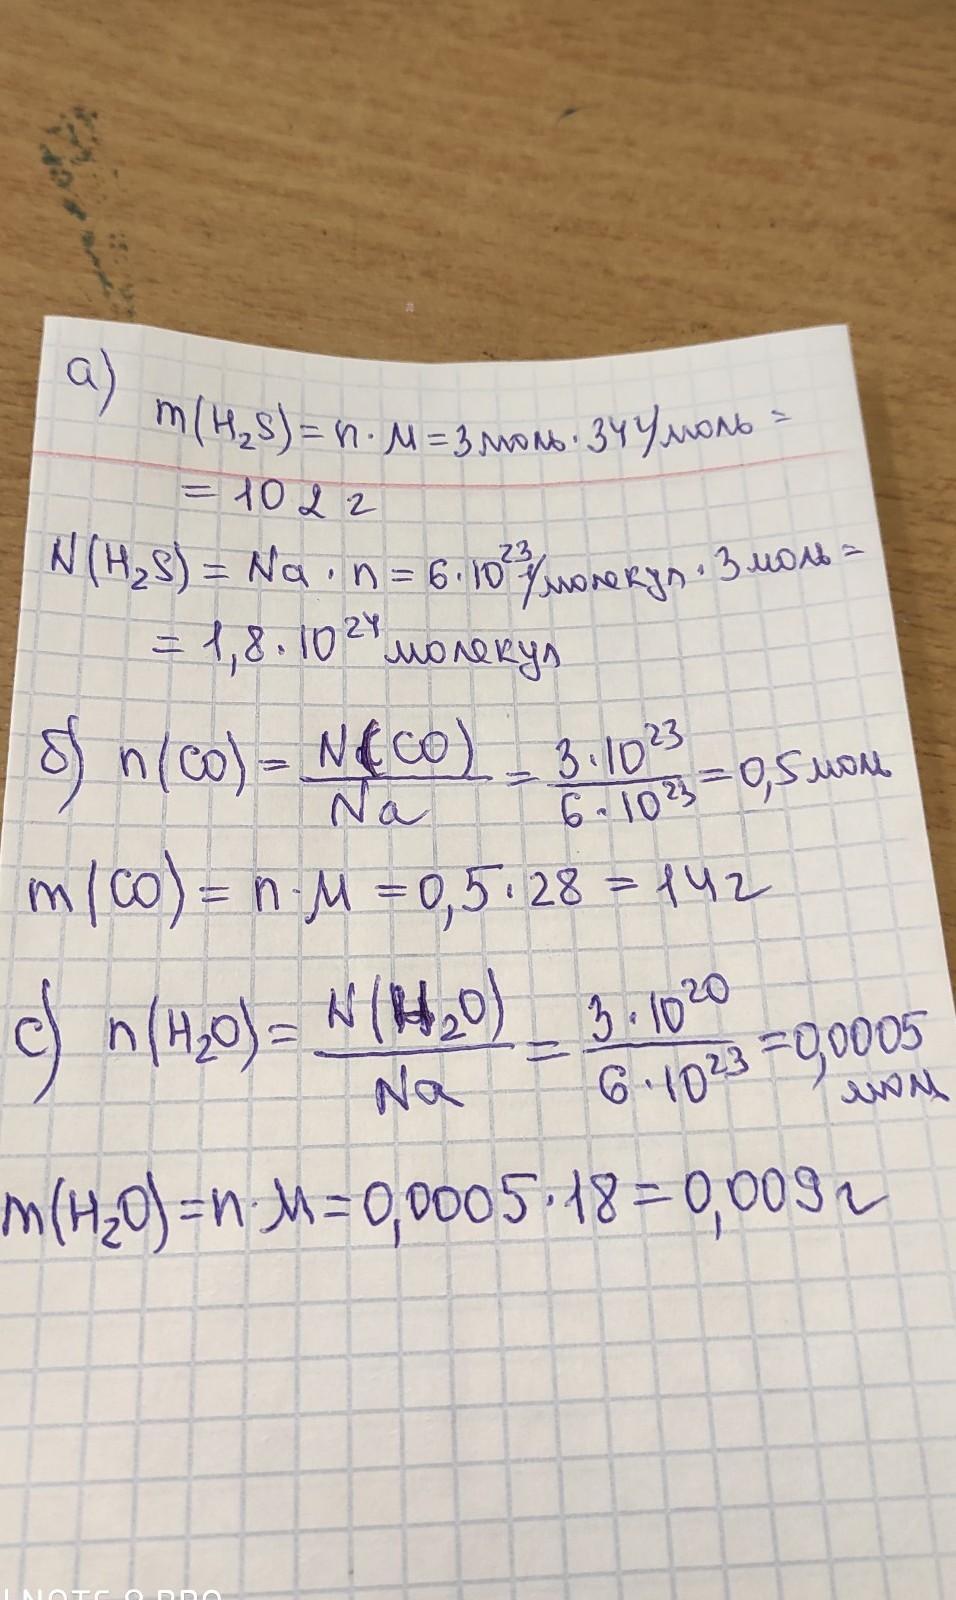 а)
m(H₂S) = n · M = 3 моль · 34 г/моль =
= 102 г
N(H₂S) = Na · n = 6 · 10²³ 1/молекул · 3 моль =
= 1,8 · 10²⁴ молекул
б) n(CO) = N(CO)/Na = 3 · 10²³/6 · 10²³ = 0,5 моль
m(CO) = n · M = 0,5 · 28 = 14 г
c) n(H₂O) = N(H₂O)/Na = 3 · 10²⁰/6 · 10²³ = 0,0005
моль
m(H₂O) = n · M = 0,0005 · 18 = 0,009 г